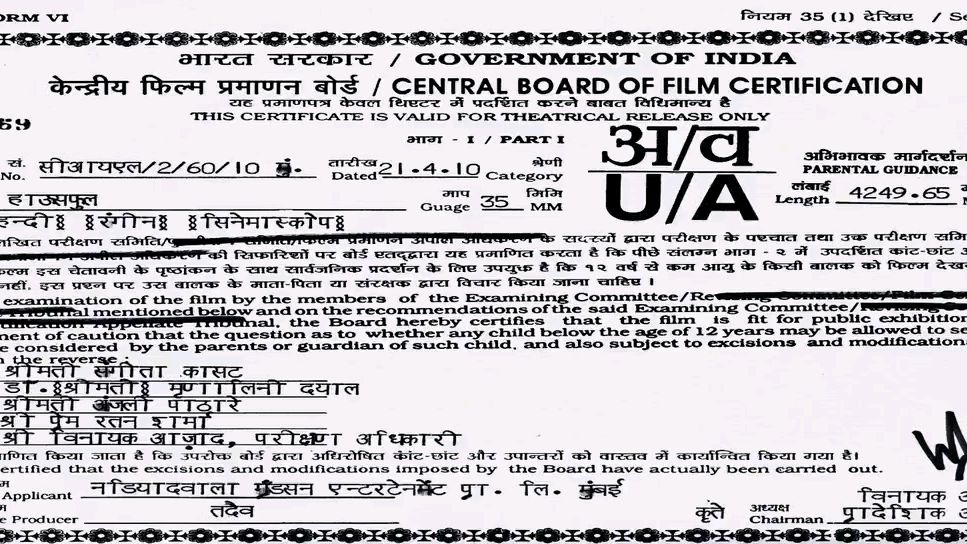 ORM VI नियम 35 (1) देखिए / Se
भारत सरकार / GOVERNMENT OF INDIA
केन्द्रीय फिल्म प्रमाणन बोर्ड / CENTRAL BOARD OF FILM CERTIFICATION
यह प्रमाणपत्र केवल थिएटर में प्रदर्शित करने बाबत विधिमान्य है
THIS CERTIFICATE IS VALID FOR THEATRICAL RELEASE ONLY
59
भाग - I / PART I
अ/व
U/A
सं. No. सीआयएल/2/60/10 मुं. तारीख Dated 21.4.10 श्रेणी Category
अभिभावक मार्गदर्शन
PARENTAL GUIDANCE
हाउसफुल माप Guage 35 मिमि MM लंबाई Length 4249.65
हन्दी रंगीन सिनेमास्कोप
लिखित परीक्षण समिति/ के सदस्यों द्वारा परीक्षण के पश्चात तथा उक्त परीक्षण समि
की सिफारिशों पर बोर्ड एतद्द्वारा यह प्रमाणित करता है कि पीछे संलग्न भाग - २ में उपदर्शित कांट-छांट
ल्म इस चेतावनी के पृष्ठांकन के साथ सार्वजनिक प्रदर्शन के लिए उपयुक्त है कि १२ वर्ष से कम आयु के किसी बालक को फिल्म देख
नहीं, इस प्रश्न पर उस बालक के माता-पिता या संरक्षक द्वारा विचार किया जाना चाहिए ।
examination of the film by the members of the Examining Committee/
mentioned below and on the recommendations of the said Examining Committee/
Appellate Tribunal, the Board hereby certifies that the film is fit for public exhibition
ment of caution that the question as to whether any child below the age of 12 years may be allowed to se
e considered by the parents or guardian of such child, and also subject to excisions and modifications
n the reverse :
श्रीमती संगीता कासट
डॉ. श्रीमती मृणालिनी दयाल
श्रीमती अंजली पाठारे
श्री प्रेम रतन शर्मा
श्री विनायक आज़ाद, परीक्षण अधिकारी
माणित किया जाता है कि उपरोक्त बोर्ड द्वारा अधिरोपित कांट-छांट और उपान्तरों को वास्तव में कार्यान्वित किया गया है।
ertified that the excisions and modifications imposed by the Board have actually been carried out.
Applicant नडियादवाला ग्रॅंडसन एन्टरटेनमेंट प्रा. लि. मुंबई
विनायक
e Producer तदैव कृते अध्यक्ष Chairman प्रादेशिक